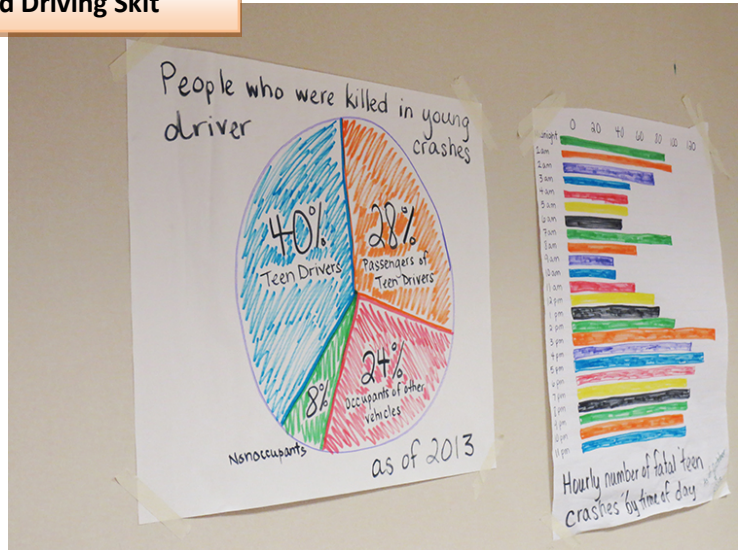 d Driving Skit
People who were killed in young
driver
crashes
40%
Teen Drivers
28%
Passengers of
Teen Drivers
24%
Occupants of other
vehicles
8%
Nonoccupants
as of 2013
0 20 40 60 80 100 120
1am
2am
3am
4am
5am
6am
7am
8am
9am
10am
11am
12pm
1pm
2pm
3pm
4pm
5pm
6pm
7pm
8pm
9pm
10pm
11pm
Hourly number of fatal teen
crashes by time of day